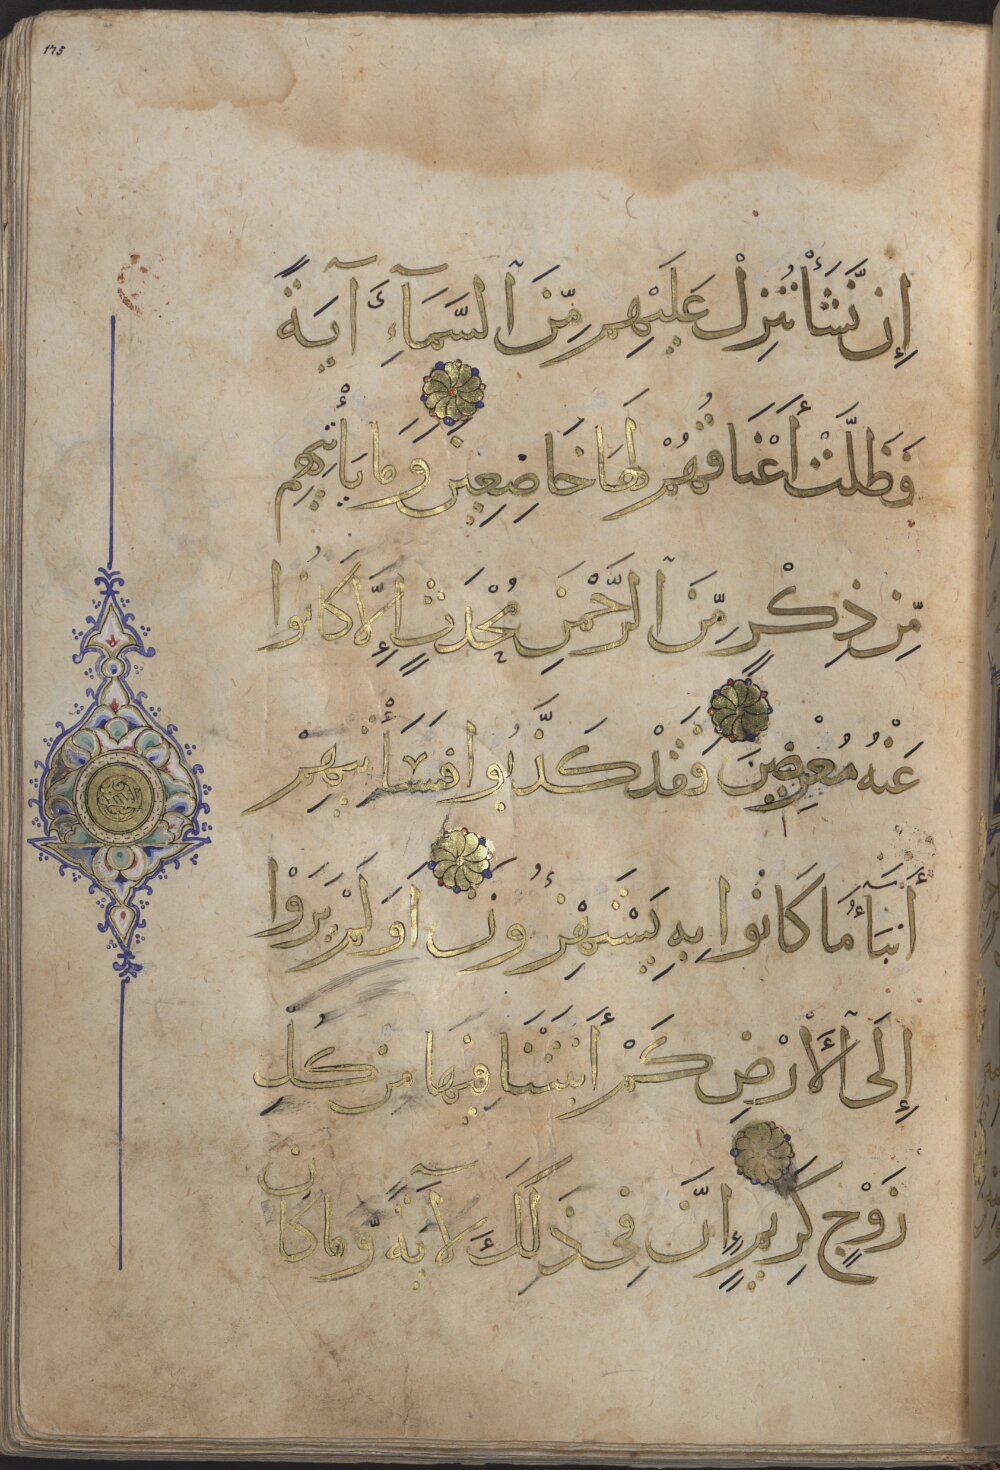 175
إِن نَّشَأْ نُنَزِلْ عَلَيْهِم مِّنَ ٱلسَّمَآءِ آيَةً
فَظَلَّتْ أَعْنَاقُهُمْ لَهَا خَاضِعِينَ وَمَا يَأْتِيهِم
مِّن ذِكْرٍ مِّنَ ٱلرَّحْمَنِ مُحْدَثٍ إِلَّا كَانُوا
عَنْهُ مُعْرِضِينَ فَقَدْ كَذَّبُوا فَسَيَأْتِيهِمْ
أَنبَآءُ مَا كَانُوا بِهِ يَسْتَهْزِءُونَ أَوَلَمْ يَرَوْا
إِلَى ٱلْأَرْضِ كَمْ أَنبَتْنَا فِيهَا مِن كُلِّ
زَوْجٍ كَرِيمٍ إِنَّ فِى ذَلِكَ لَآيَةً وَمَا كَان